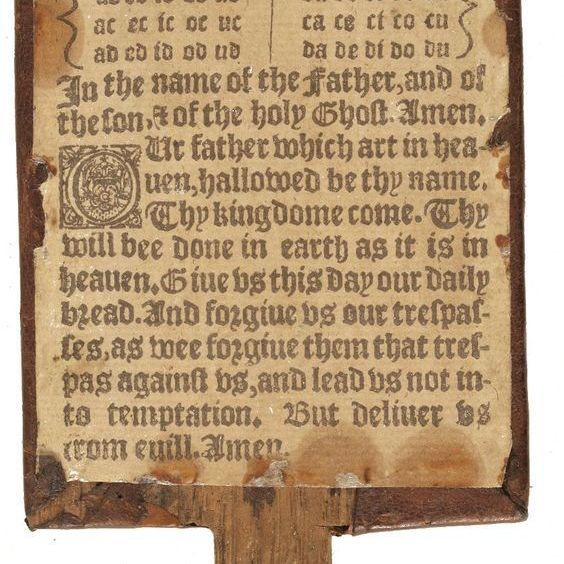 ac ec ic oc uc
ca ce ci co cu
ad ed id od ud
da de di do du
In the name of the Father, and of
the son, & of the holy Ghost. Amen.
OUr father which art in hea-
uen, hallowed be thy name.
Thy kingdome come. Thy
will bee done in earth as it is in
heauen. Giue vs this day our daily
bread. And forgiue vs our trespas-
ses, as wee forgiue them that tres-
pas against vs, and lead vs not in-
to temptation. But deliuer vs
from euill. Amen.